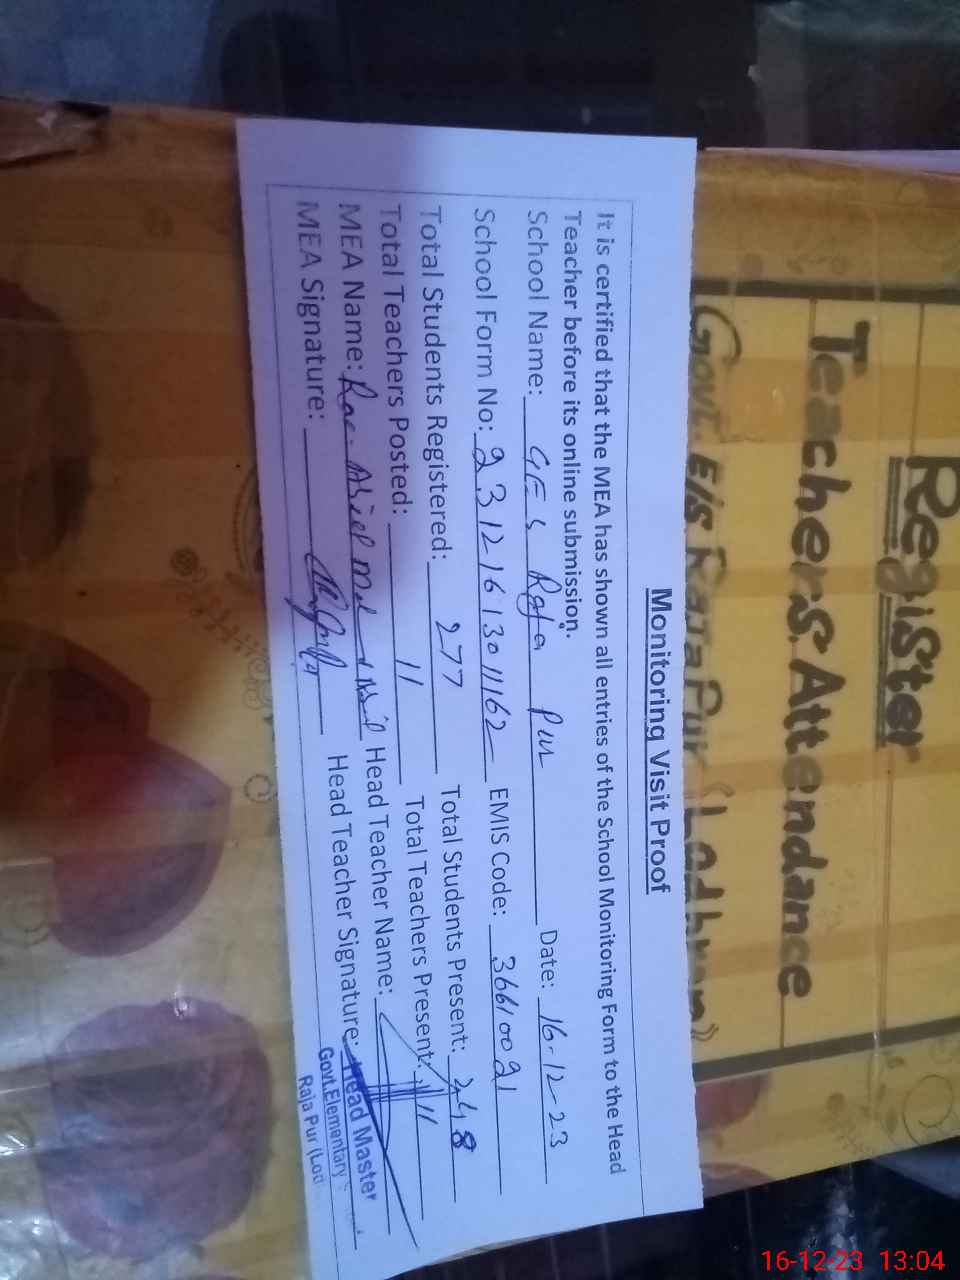 Register
Teachers Attendance
Govt. E/S Raja Pur (Lodhran)
Monitoring Visit Proof
It is certified that the MEA has shown all entries of the School Monitoring Form to the Head
Teacher before its online submission.
School Name: GES Raja Pur Date: 16-12-23
School Form No: EMIS Code: 36610091
Total Students Registered: 277 Total Students Present: 248
Total Teachers Posted: 11 Total Teachers Present: 11
MEA Name: Head Teacher Name:
MEA Signature: Head Teacher Signature:
Head Master
Govt.Elementary
Raja Pur (Lod
16-12-23 13:04